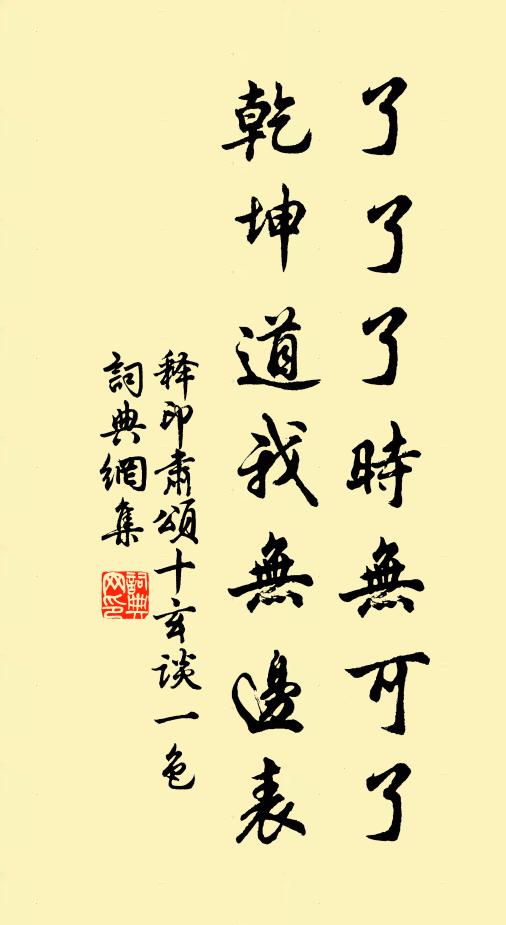 了了了時無可了
乾坤道我無邊表
释印肅頌十玄谈一色
詞典網集
詞典网印